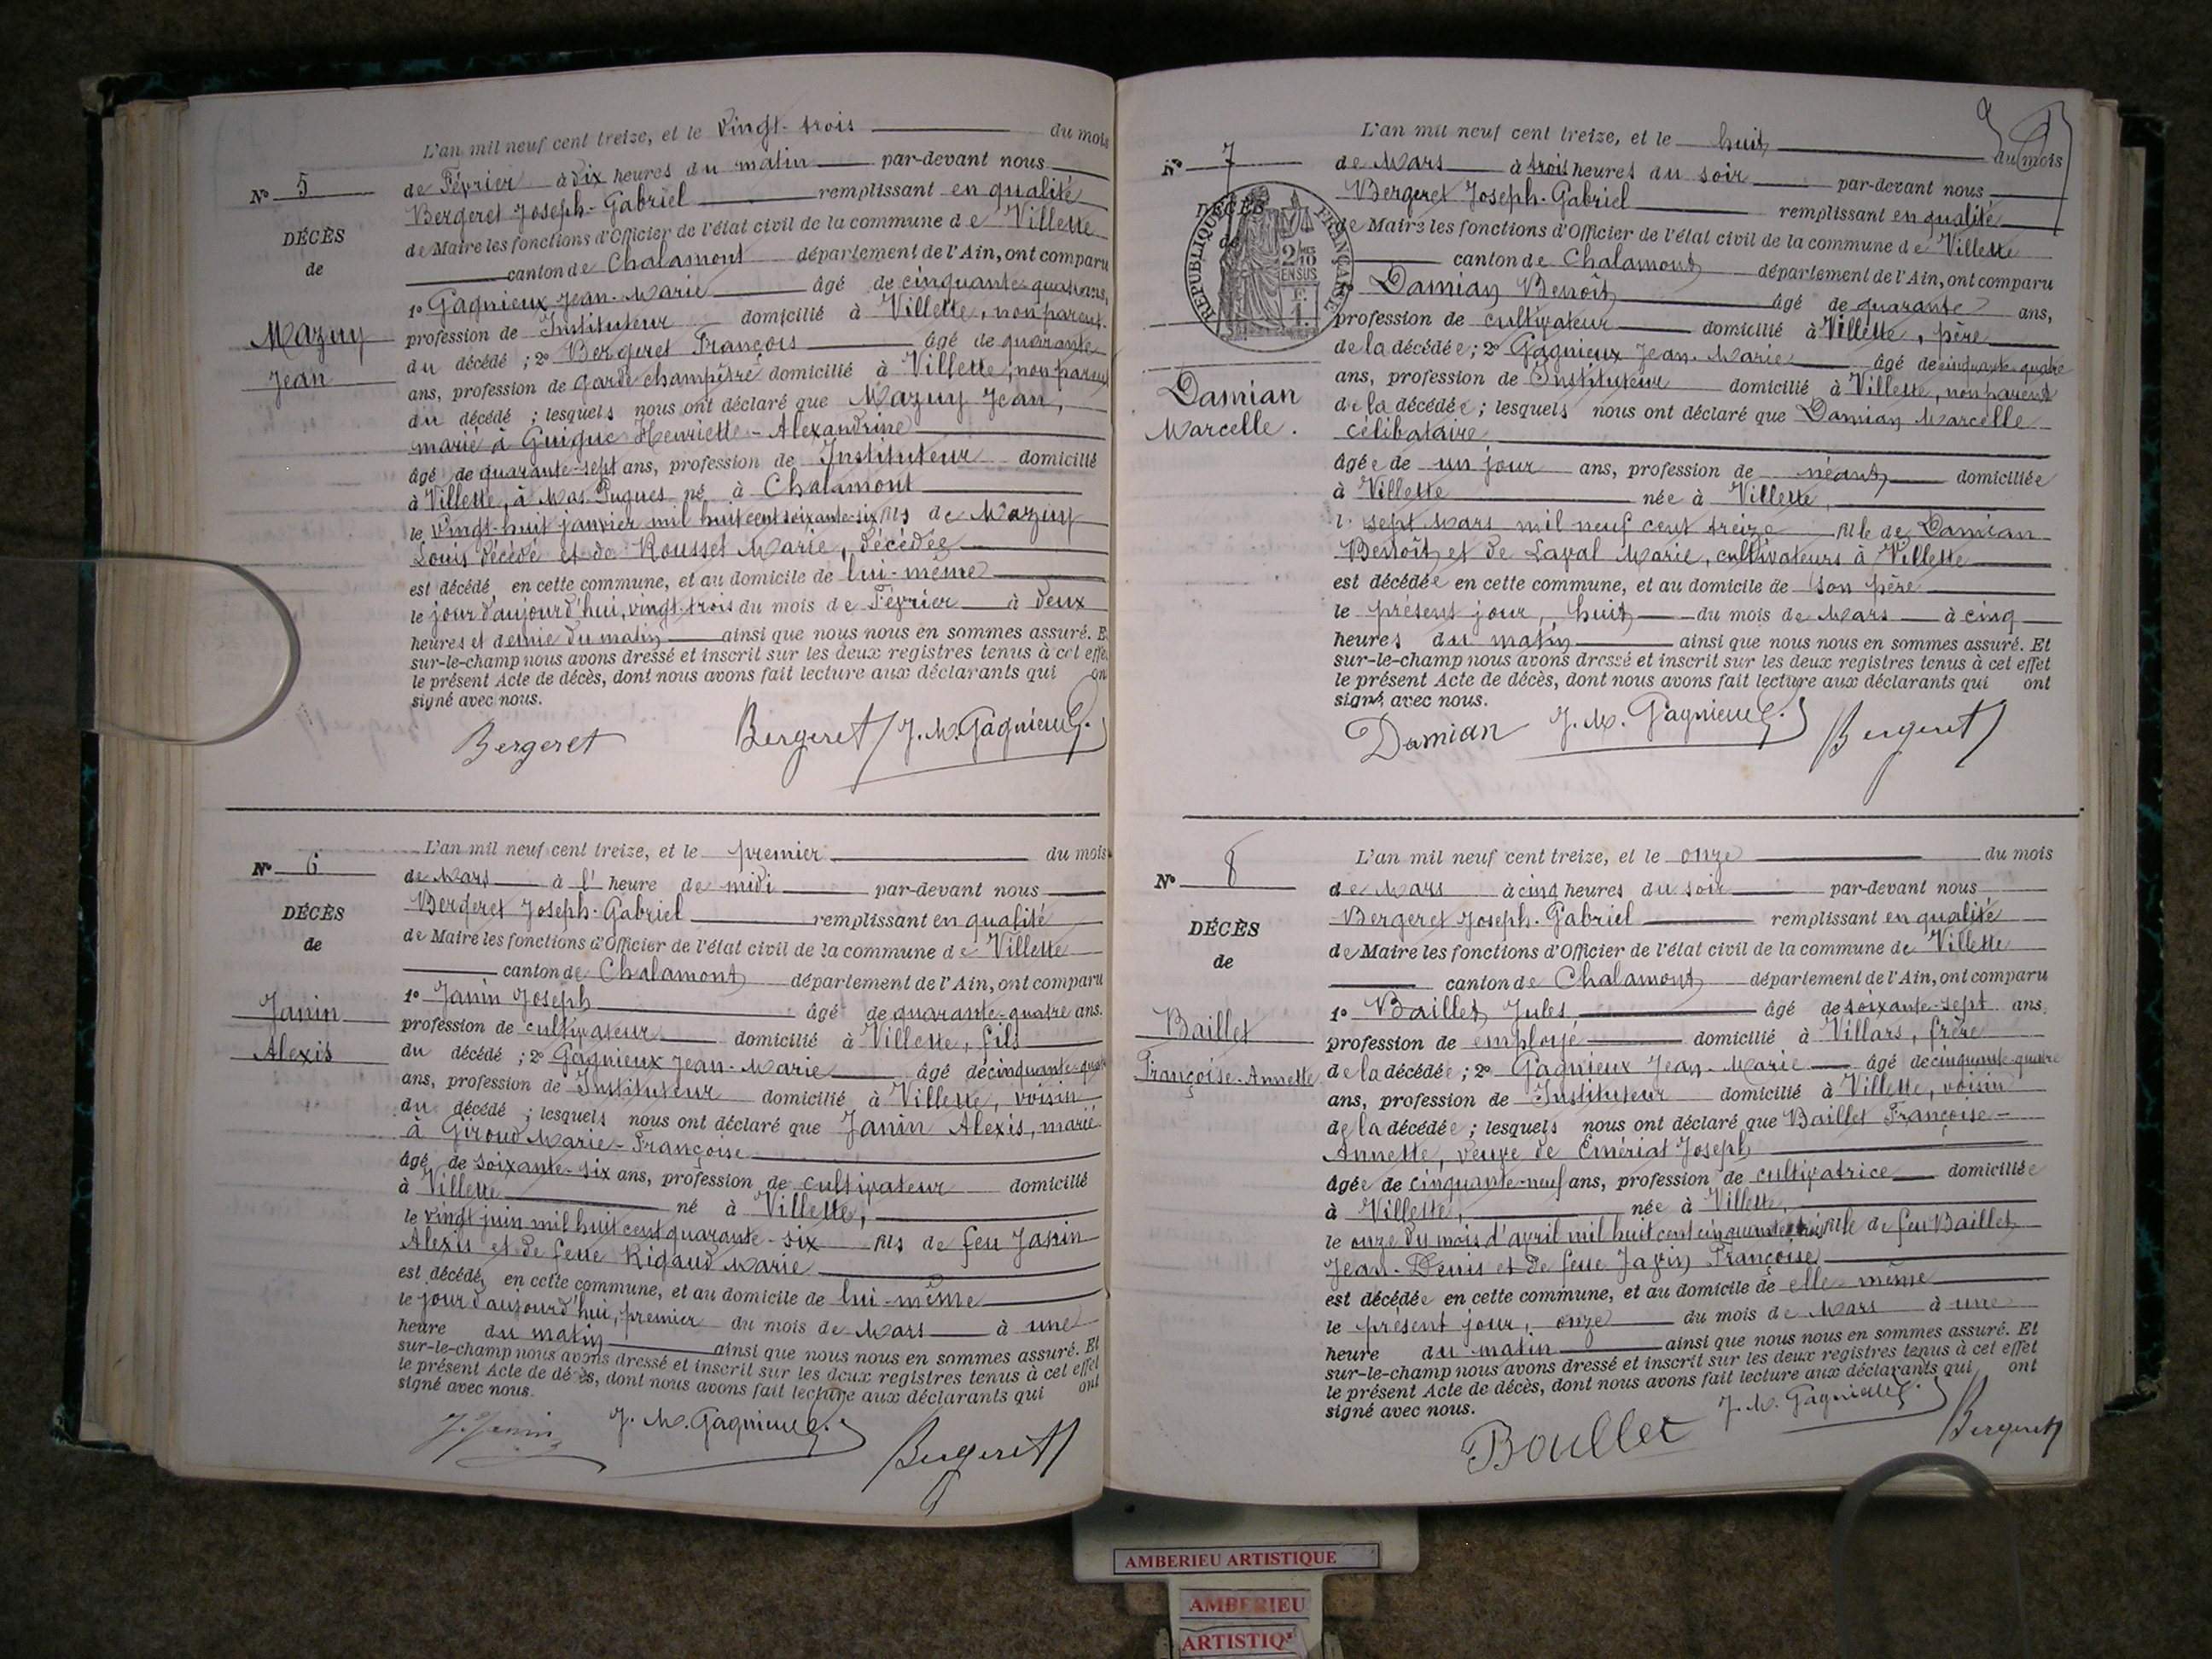 L'an mil neuf cent treize, et le vingt-trois du mois
N° 5
de Février à dix heures du matin par-devant nous
Bergeret Joseph-Gabriel remplissant en qualité
DÉCÈS
de Maire les fonctions d'Officier de l'état civil de la commune de Villette
de
canton de Chalamont département de l'Ain, ont comparu
1° Gagnieux Jean-Marie âgé de cinquante-quatre ans,
Mazuy
profession de Instituteur domicilié à Villette, non parent
Jean
du décédé ; 2° Bergeret François âgé de quarante
ans, profession de garde champêtre domicilié à Villette, non parent
du décédé ; lesquels nous ont déclaré que Mazuy Jean,
marié à Guigue Henriette-Alexandrine
âgé de quarante-sept ans, profession de Instituteur domicilié
à Villette, à Mas Pugues né à Chalamont
le vingt-huit janvier mil huit cent soixante-six fils de Mazuy
Louis décédé et de Rousset Marie, décédée
est décédé en cette commune, et au domicile de lui-même
le jour d'aujourd'hui, vingt-trois du mois de Février à deux
heures et demie du matin ainsi que nous nous en sommes assuré. E
sur-le-champ nous avons dressé et inscrit sur les deux registres tenus à cet effe
le présent Acte de décès, dont nous avons fait lecture aux déclarants qui on
signé avec nous.
Bergeret Bergeret J. M. Gagnieux
L'an mil neuf cent treize, et le premier du mois
N° 6
de Mars à l'heure de midi par-devant nous
Bergeret Joseph-Gabriel remplissant en qualité
DÉCÈS
de Maire les fonctions d'Officier de l'état civil de la commune de Villette
de
canton de Chalamont département de l'Ain, ont comparu
1° Janin Joseph âgé de quarante-quatre ans.
Janin
profession de cultivateur domicilié à Villette, fils
Alexis
du décédé ; 2° Gagnieux Jean-Marie âgé de cinquante-quatre
ans, profession de Instituteur domicilié à Villette, voisin
du décédé ; lesquels nous ont déclaré que Janin Alexis, marié
à Giroud Marie-Françoise
âgé de soixante-six ans, profession de cultivateur domicilié
à Villette né à Villette,
le vingt juin mil huit cent quarante-six fils de feu Janin
Alexis et de feue Rigaud Marie
est décédé, en cette commune, et au domicile de lui-même
le jour d'aujourd'hui, premier du mois de Mars à une
heure du matin ainsi que nous nous en sommes assuré. Et
sur-le-champ nous avons dressé et inscrit sur les deux registres tenus à cet effet
le présent Acte de décès, dont nous avons fait lecture aux déclarants qui ont
signé avec nous.
J. Janin J. M. Gagnieux Bergeret
L'an mil neuf cent treize, et le huit du mois
N° 7
de Mars à trois heures du soir par-devant nous
Bergeret Joseph-Gabriel remplissant en qualité
DÉCÈS
de Maire les fonctions d'Officier de l'état civil de la commune de Villette
de
RÉPUBLIQUE FRANÇAISE
2/10 EN SUS
canton de Chalamont département de l'Ain, ont comparu
Damian Benoit âgé de quarante ans,
profession de cultivateur domicilié à Villette, père
de la décédée ; 2° Gagnieux Jean-Marie âgé de cinquante-quatre
ans, profession de Instituteur domicilié à Villette, non parent
Damian
de la décédée ; lesquels nous ont déclaré que Damian Marcelle
Marcelle.
célibataire
âgée de un jour ans, profession de néant domiciliée
à Villette née à Villette,
sept Mars mil neuf cent treize fille de Damian
Benoît et de Laval Marie, cultivateurs à Villette
est décédée en cette commune, et au domicile de son père
le présent jour, huit du mois de Mars à cinq
heures du matin ainsi que nous nous en sommes assuré. Et
sur-le-champ nous avons dressé et inscrit sur les deux registres tenus à cet effet
le présent Acte de décès, dont nous avons fait lecture aux déclarants qui ont
signé avec nous.
Damian J. M. Gagnieux Bergeret
L'an mil neuf cent treize, et le onze du mois
N° 8
de Mars à cinq heures du soir par-devant nous
Bergeret Joseph-Gabriel remplissant en qualité
DÉCÈS
de Maire les fonctions d'Officier de l'état civil de la commune de Villette
de
canton de Chalamont département de l'Ain, ont comparu
1° Baillet Jules âgé de soixante-sept ans.
Baillet
profession de employé domicilié à Villars, frère
Françoise-Annette
de la décédée ; 2° Gagnieux Jean-Marie âgé de cinquante-quatre
ans, profession de Instituteur domicilié à Villette, voisin
de la décédée ; lesquels nous ont déclaré que Baillet Françoise-
Annette, veuve de Émériat Joseph
âgée de cinquante-neuf ans, profession de cultivatrice domiciliée
à Villette, née à Villette,
le onze du mois d'avril mil huit cent cinquante-trois fille de feu Baillet
Jean-Denis et de feue Javin Françoise
est décédée en cette commune, et au domicile de elle-même
le présent jour, onze du mois de Mars à une
heure du matin ainsi que nous nous en sommes assuré. Et
sur-le-champ nous avons dressé et inscrit sur les deux registres tenus à cet effet
le présent Acte de décès, dont nous avons fait lecture aux déclarants qui ont
signé avec nous.
Baillet J. M. Gagnieux Bergeret
AMBERIEU ARTISTIQUE
AMBERIEU
ARTISTIQ